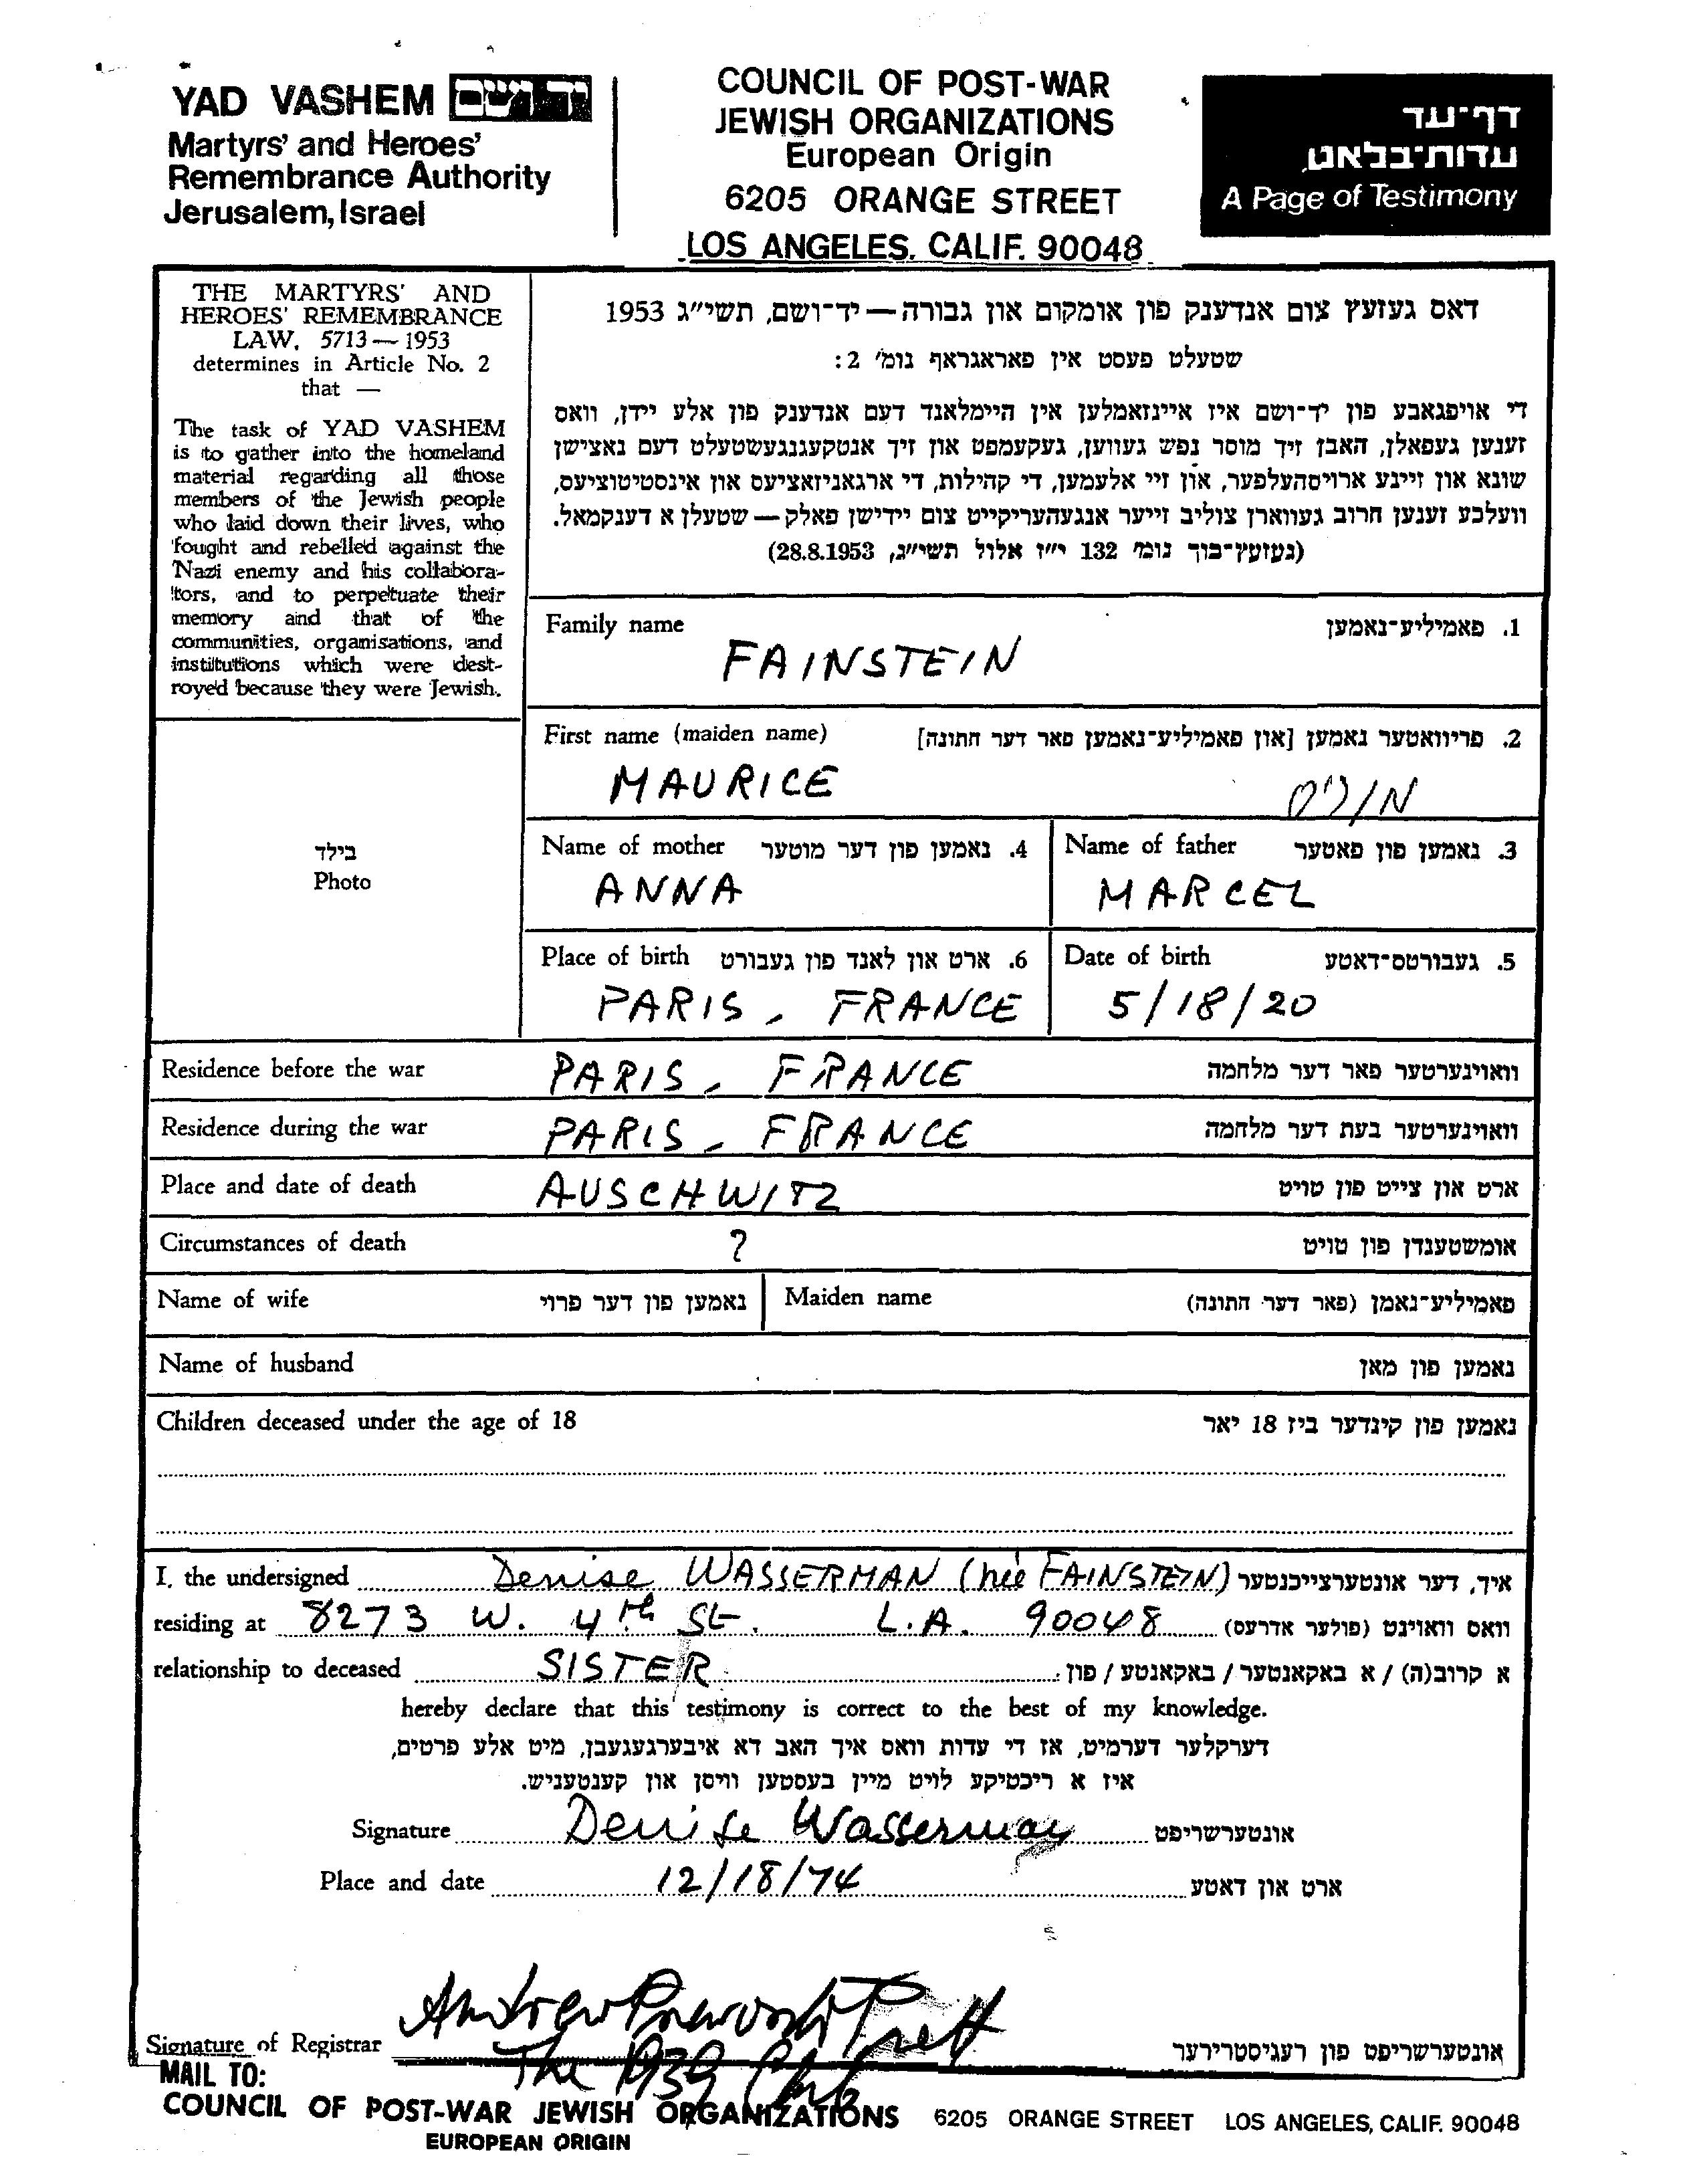 YAD VASHEM יד ושם
Martyrs' and Heroes'
Remembrance Authority
Jerusalem, Israel
COUNCIL OF POST-WAR
JEWISH ORGANIZATIONS
European Origin
6205 ORANGE STREET
LOS ANGELES, CALIF. 90048
דף־עד
עדות־בלאט
A Page of Testimony
THE MARTYRS' AND
HEROES' REMEMBRANCE
LAW, 5713 — 1953
determines in Article No. 2
that —
The task of YAD VASHEM
is to gather into the homeland
material regarding all those
members of the Jewish people
who laid down their lives, who
fought and rebelled against the
Nazi enemy and his collabora-
tors, and to perpetuate their
memory and that of the
communities, organisations, and
institutions which were dest-
royed because they were Jewish.
דאס געזעץ צום אנדענק פון אומקום און גבורה — יד־ושם, תשי״ג 1953
שטעלט פעסט אין פאראגראף נומ׳ 2:
די אויפגאבע פון יד־ושם איז איינזאמלען אין היימלאנד דעם אנדענק פון אלע יידן, וואס
זענען געפאלן, האבן זיך מוסר נפש געווען, געקעמפט און זיך אנטקעגנגעשטעלט דעם נאצישן
שונא און זיינע ארויסהעלפער, און זיי אלעמען, די קהילות, די ארגאניזאציעס און אינסטיטוציעס,
וועלכע זענען חרוב געווארן צוליב זייער אנגעהעריקייט צום יידישן פאלק — שטעלן א דענקמאל.
(געזעץ־בוך נומ׳ 132 י״ז אלול תשי״ג, 28.8.1953)
Family name 1. פאמיליע־נאמען
FAINSTEIN
First name (maiden name) 2. פריוואטער נאמען [און פאמיליע־נאמען פאר דער חתונה]
MAURICE מוריס
בילד
Photo
Name of mother 4. נאמען פון דער מוטער
ANNA
Name of father 3. נאמען פון פאטער
MARCEL
Place of birth 6. ארט און לאנד פון געבורט
PARIS, FRANCE
Date of birth 5. געבורטס־דאטע
5/18/20
Residence before the war PARIS, FRANCE וואוינערטער פאר דער מלחמה
Residence during the war PARIS, FRANCE וואוינערטער בעת דער מלחמה
Place and date of death AUSCHWITZ ארט און צייט פון טויט
Circumstances of death ? אומשטענדן פון טויט
Name of wife נאמען פון דער פרוי Maiden name פאמיליע־נאמן (פאר דער חתונה)
Name of husband נאמען פון מאן
Children deceased under the age of 18 נאמען פון קינדער ביז 18 יאר
I, the undersigned Denise WASSERMAN (née FAINSTEIN) איך, דער אונטערצייכנטער
residing at 8273 W. 4th St. L.A. 90048 וואס וואוינט (פולער אדרעס)
relationship to deceased SISTER א קרוב(ה) / א באקאנטער / באקאנטע / פון:
hereby declare that this testimony is correct to the best of my knowledge.
דערקלער דערמיט, אז די עדות וואס איך האב דא איבערגעגעבן, מיט אלע פרטים,
איז א ריכטיקע לויט מיין בעסטען וויסן און קענטעניש.
Signature Denise Wasserman אונטערשריפט
Place and date 12/18/74 ארט און דאטע
Andrew
Signature of Registrar The 1939 Club אונטערשריפט פון רעגיסטרירער
MAIL TO:
COUNCIL OF POST-WAR JEWISH ORGANIZATIONS 6205 ORANGE STREET LOS ANGELES, CALIF. 90048
EUROPEAN ORIGIN